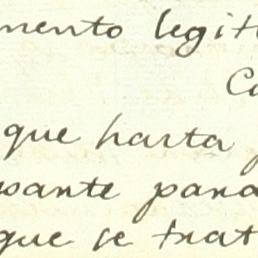 mento legiti
Ca
que harta
sante para
que se trat